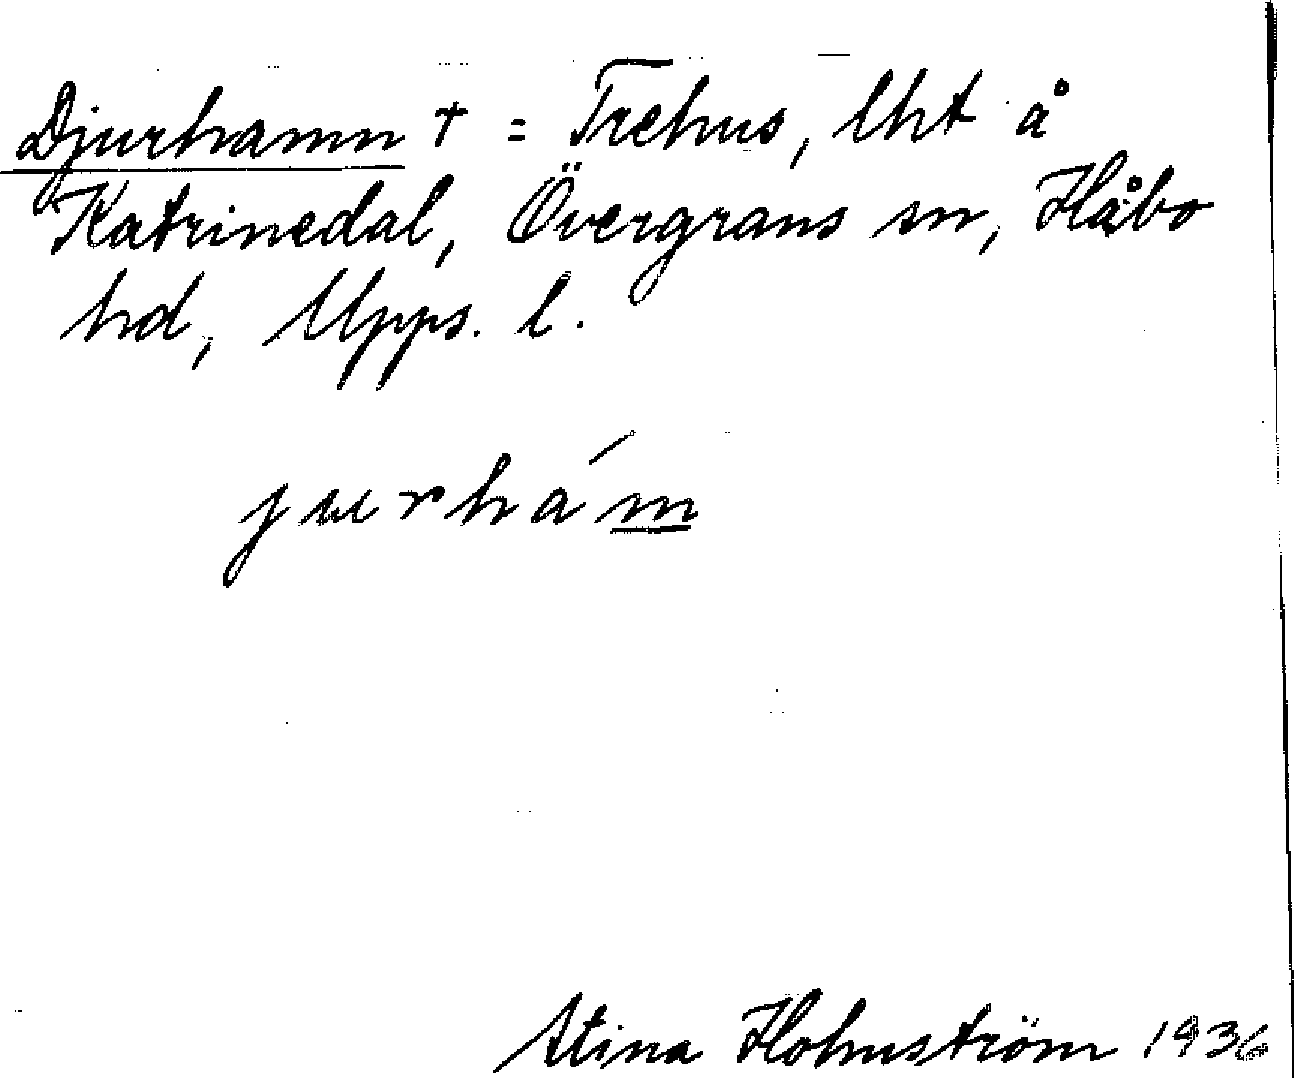 Djurhamn † = Trehus, lht å
Katrinedal, Övergrans sn, Håbo
hd, Upps. l.
jurhám
Stina Holmström 1936